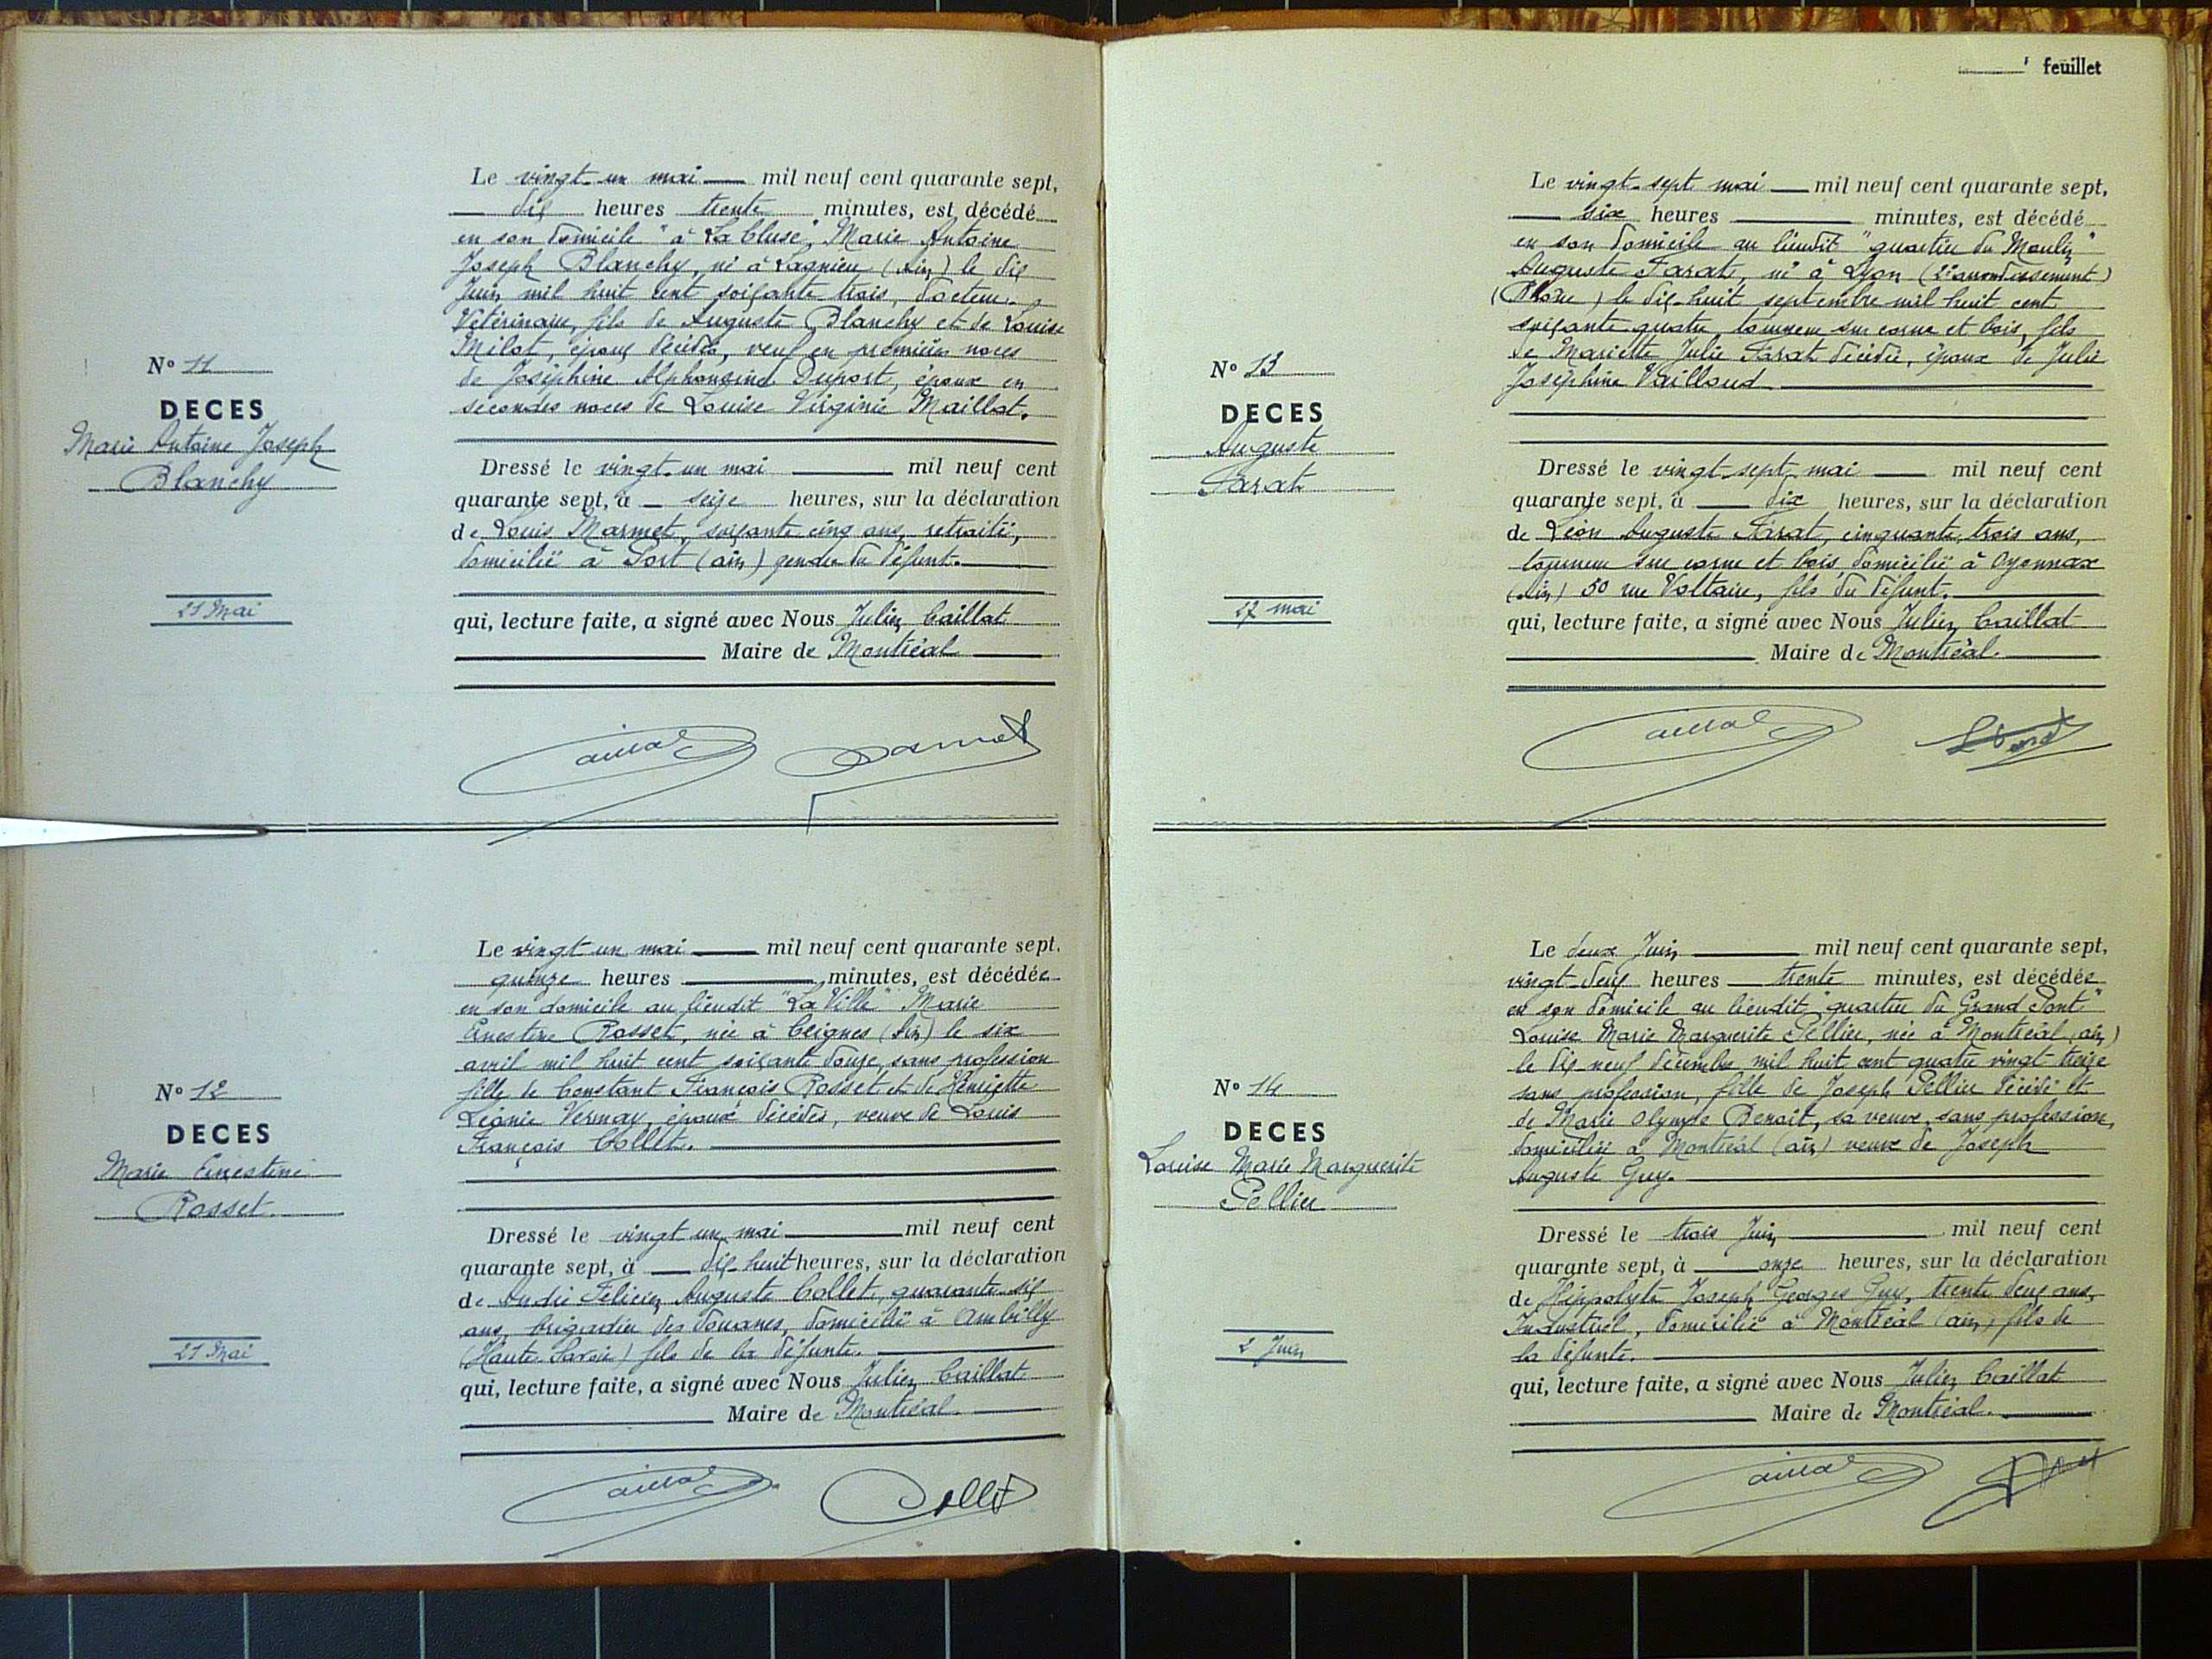 Le vingt-un mai mil neuf cent quarante sept,
dix heures trente minutes, est décédé
en son domicile "à La Cluse", Marie Antoine
Joseph Blanchy, né à Lagnieu (Ain) le dix
Juin mil huit cent soixante trois, docteur
Vétérinaire, fils de Auguste Blanchy et de Louise
Milat, époux décédés, veuf en premières noces
de Joséphine Alphonsine Duport, époux en
secondes noces de Louise Virginie Maillat.
N° 11
DECES
Marie Antoine Joseph
Blanchy
21 Mai
Dressé le vingt-un mai mil neuf cent
quarante sept, à seize heures, sur la déclaration
de Louis Marmet, soixante cinq ans, retraité,
domicilié à Port (ain) gendre du défunt.
qui, lecture faite, a signé avec Nous Julien Caillat
Maire de Montréal
Le vingt un mai mil neuf cent quarante sept.
quinze heures minutes, est décédée
en son domicile au lieudit "La Ville" Marie
Ernestine Rosset, née à Ceignes (Ain) le six
avril mil huit cent soixante douze, sans profession
fille de Constant François Rosset et de Henriette
Léonie Vernay, époux décédés, veuve de Louis
François Collet.
N° 12
DECES
Marie Ernestine
Rosset
21 Mai
Dressé le vingt un mai mil neuf cent
quarante sept, à dix-huit heures, sur la déclaration
de André Félicien Auguste Collet, quarante-six
ans, brigadier des douanes, domicilié à Ambilly
(Haute-Savoie) fils de la défunte.
qui, lecture faite, a signé avec Nous Julien Caillat
Maire de Montréal
Collet
feuillet
Le vingt-sept mai mil neuf cent quarante sept,
six heures minutes, est décédé
en son domicile au lieudit "quartier du Moulin"
Auguste Farat, né à Lyon (2e arrondissement)
(Rhône) le dix-huit septembre mil huit cent
soixante quatre, tourneur sur corne et bois, fils
de Mariette Julie Farat décédée, époux de Julie
Joséphine Vailloud
N° 13
DECES
Auguste
Farat
27 mai
Dressé le vingt-sept mai mil neuf cent
quarante sept, à dix heures, sur la déclaration
de Léon Auguste Farat, cinquante trois ans,
tourneur sur corne et bois, domicilié à Oyonnax
(Ain) 50 rue Voltaire, fils du défunt.
qui, lecture faite, a signé avec Nous Julien Caillat
Maire de Montréal.
Le deux Juin mil neuf cent quarante sept,
vingt-deux heures trente minutes, est décédée
en son domicile au lieudit "quartier du Grand Pont"
Louise Marie Marguerite Pellier, née à Montréal (ain)
le dix neuf décembre mil huit cent quatre vingt treize
sans profession, fille de Joseph Pellier décédé et
de Marie Olympe Benoit, sa veuve, sans profession,
domiciliée à Montréal (ain) veuve de Joseph
Auguste Guy.
N° 14
DECES
Louise Marie Marguerite
Pellier
2 Juin
Dressé le trois Juin mil neuf cent
quarante sept, à onze heures, sur la déclaration
de Hippolyte Joseph Georges Guy, trente deux ans,
Industriel, domicilié à Montréal (ain) fils de
la défunte.
qui, lecture faite, a signé avec Nous Julien Caillat
Maire de Montréal.